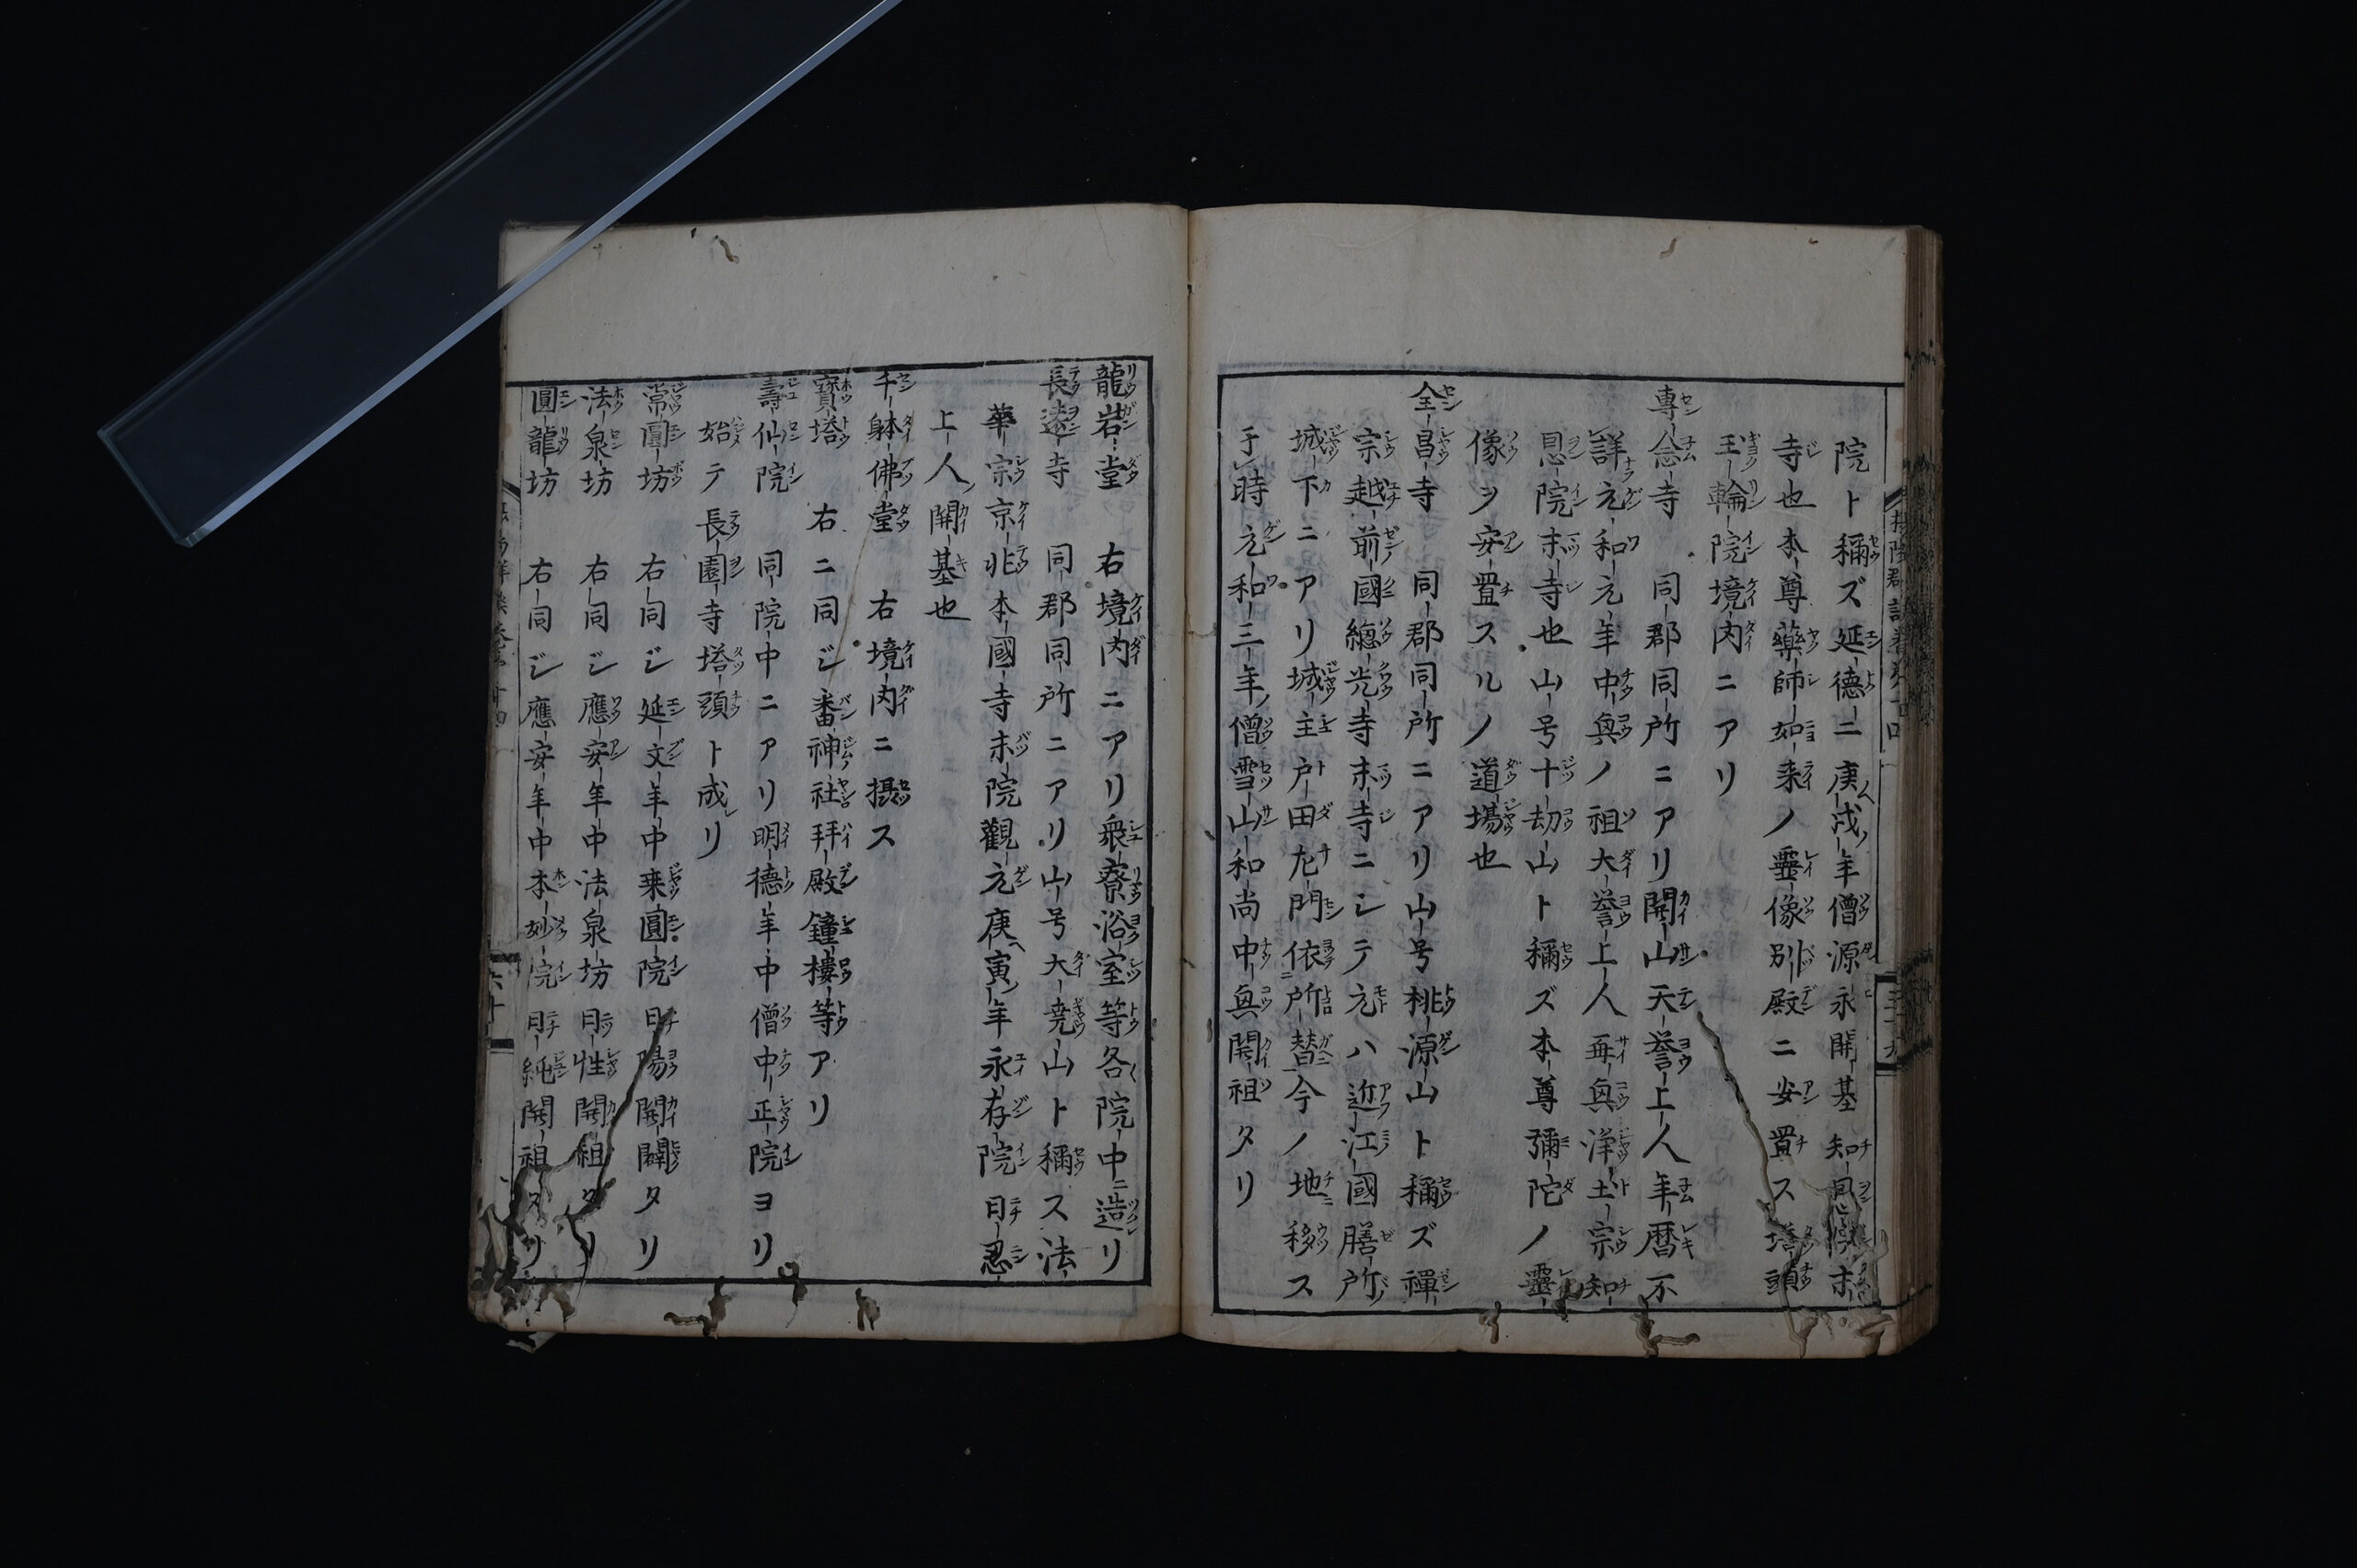 院ト稱ズ延德二庚戌年僧源永開基知恩院末
寺也本尊藥師如来ノ靈像別殿ニ安置ス塔頭
玉輪院境内ニアリ
專念寺 同郡同所ニアリ開山天誉上人年暦不
詳元和元年中興ノ祖大誉上人再興淨土宗知
恩院末寺也山号十劫山ト稱ズ本尊彌陀ノ靈
像ヲ安置スルノ道場也
全昌寺 同郡同所ニアリ山号桃源山ト稱ズ禪
宗越前國總光寺末寺ニシテ元ハ近江國膳所
城下ニアリ城主戸田左門依所替今ノ地移ス
于時元和三年僧雪山和尚中興開祖タリ
龍岩堂 右境内ニアリ衆寮浴室等各院中ニ造リ
長遠寺 同郡同所ニアリ山号大尭山ト稱ス法
華宗京兆本國寺末院觀元庚寅年永存院日忍
上人開基也
千躰佛堂 右境内ニ摂ス
寳塔 右ニ同ジ番神社拜殿鐘樓等アリ
壽仙院 同院中ニアリ明德年中僧中正院ヨリ
始テ長園寺塔頭ト成リ
常圓坊 右同ジ延文年中乗圓院日陽開闢タリ
法泉坊 右同ジ應安年中法泉坊日性開祖タリ
圓龍坊 右同ジ應安年中本妙院日純開祖タリ